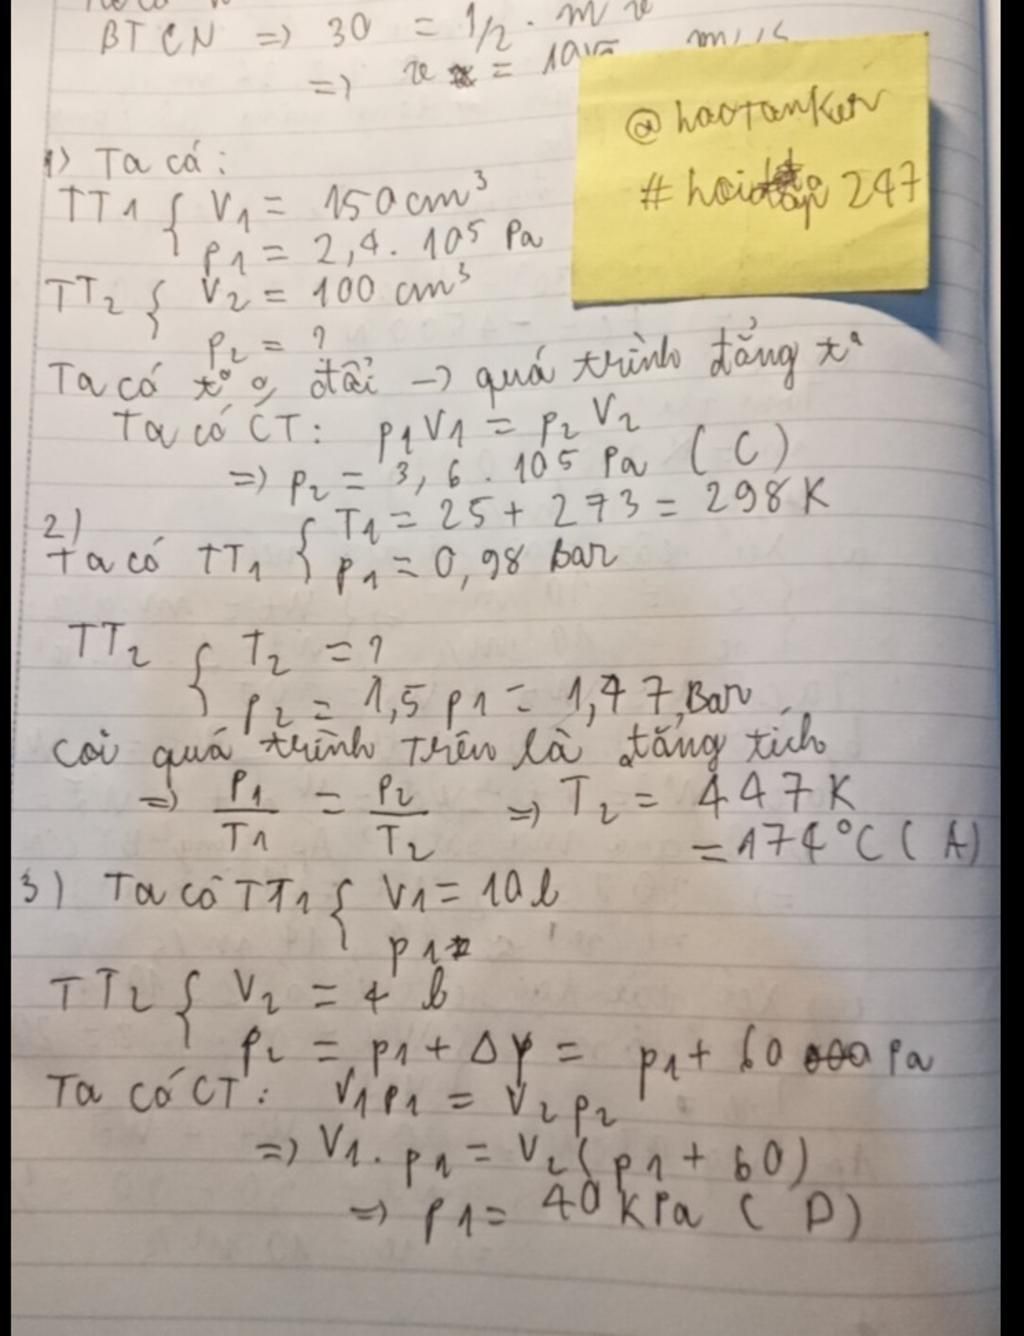 BTCN => 30 = 1/2 . m v
=> v = 10√ m/s
@haotanker
#hoidap247
1) Ta có:
TT1 { V1 = 150 cm³
p1 = 2,4 . 10⁵ Pa
TT2 { V2 = 100 cm³
p2 = ?
Ta có t° ko đổi -> quá trình đẳng t°
Ta có CT: p1V1 = p2V2
=> p2 = 3,6 . 10⁵ Pa (C)
2)
Ta có TT1 { T1 = 25 + 273 = 298K
p1 = 0,98 Bar
TT2 { T2 = ?
p2 = 1,5 p1 = 1,47 Bar
Coi quá trình trên là đẳng tích
=> p1/T1 = p2/T2 => T2 = 447K
= 174°C (A)
3) Ta có TT1 { V1 = 10 l
p1
TT2 { V2 = 4 l
p2 = p1 + Δp = p1 + 60 Pa
Ta có CT: V1p1 = V2p2
=> V1 . p1 = V2(p1 + 60)
=> p1 = 40 kPa (D)